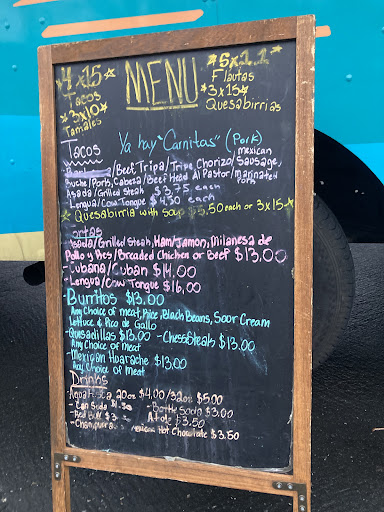 MENU
4x15
Tacos
3x10
Tamales
5x11
Flautas
3x15
Quesabirrias
Ya hay "Carnitas" (Pork)
Tacos
Mexican
/Beef, Tripa/Tripe, Chorizo/Sausage,
Buche/Pork, Cabeza/Beef Head Al Pastor/marinated Pork
Asada/Grilled Steak $3.75 each
Lengua/Cow Tongue $4.50 each
Quesabirria with soup $5.50 each or 3x15
ortas
Asada/Grilled Steak, Ham/Jamon, Milanesa de
Pollo y Res/Breaded Chicken or Beef $13.00
-Cubana/Cuban $14.00
-Lengua/Cow Tongue $16.00
-Burritos $13.00
Any Choice of meat, Rice, Black Beans, Sour Cream
Lettuce & Pico de Gallo
-Quesadillas $13.00 -CheeseSteak $13.00
Any Choice of Meat
-Mexican Huarache $13.00
Any Choice of Meat
Drinks
-Agua 20oz $4.00/32oz $5.00
-Can Soda -Bottle Soda $3.00
-Red Bull $3 -Atole $3.50
-Champurra Hot Chocolate $3.50